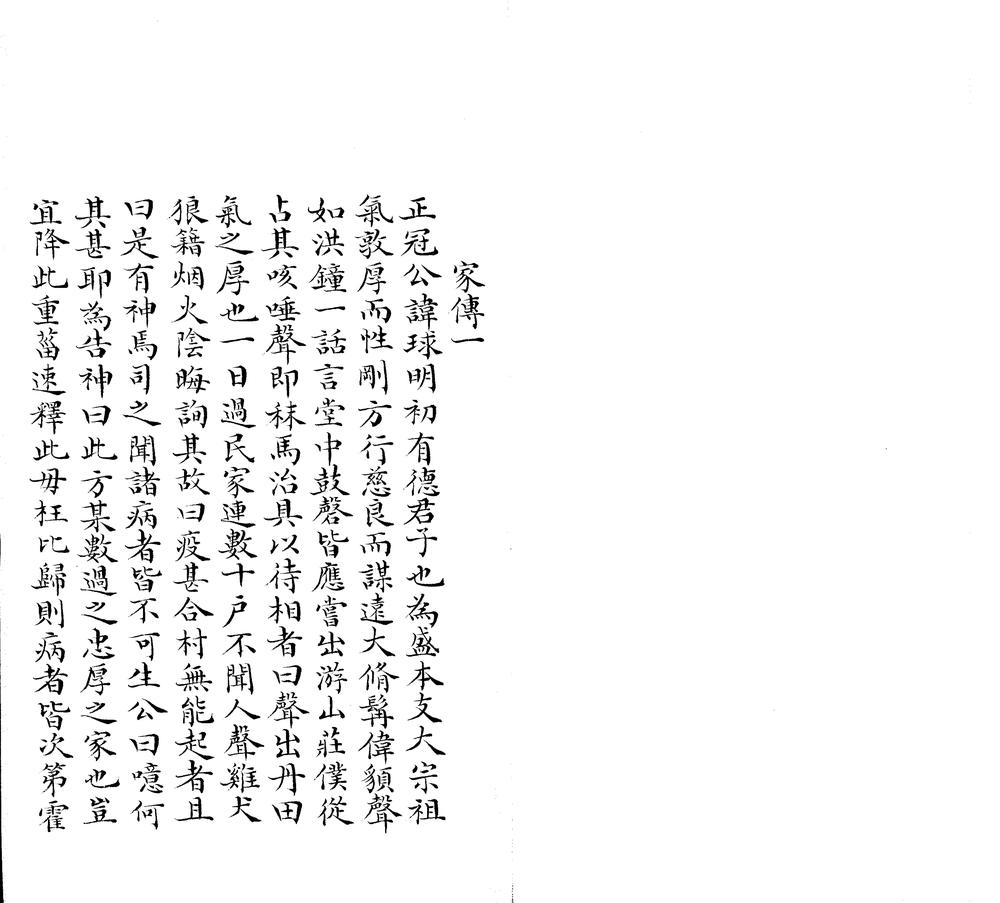 家傳一
正冠公諱球明初有德君子也為盛本支大宗祖
氣敦厚而性剛方行慈良而謀遠大脩髯偉貌聲
如洪鐘一話言堂中鼓磬皆應嘗出游山莊僕從
占其咳唾聲即秣馬治具以待相者曰聲出丹田
氣之厚也一日過民家連數十户不聞人聲雞犬
狼籍烟火陰晦詢其故曰疫甚合村無能起者且
曰是有神焉司之聞諸病者皆不可生公曰噫何
其甚耶為告神曰此方某數過之忠厚之家也豈
宜降此重菑速釋此毋枉比歸則病者皆次第霍